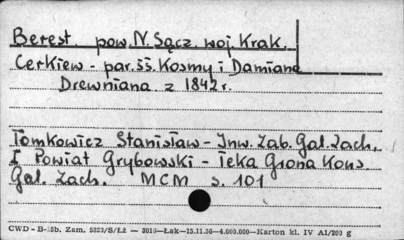 Berest pow. N. Sącz. woj. Krak.
Cerkiew - par. śś. Kosmy i Damiana
Drewniana z 1842 r.
Tomkowicz Stanisław - Inw. Zab. Gal. Zach.
I Powiat Grybowski - Teka Grona Kons.
Gal. Zach. MCM s. 101
CWD - B-15b. Zam. 5323/S/Łź — 3010—Łak—15.11.50—4.000.000—Karton kl. IV A1/200 g